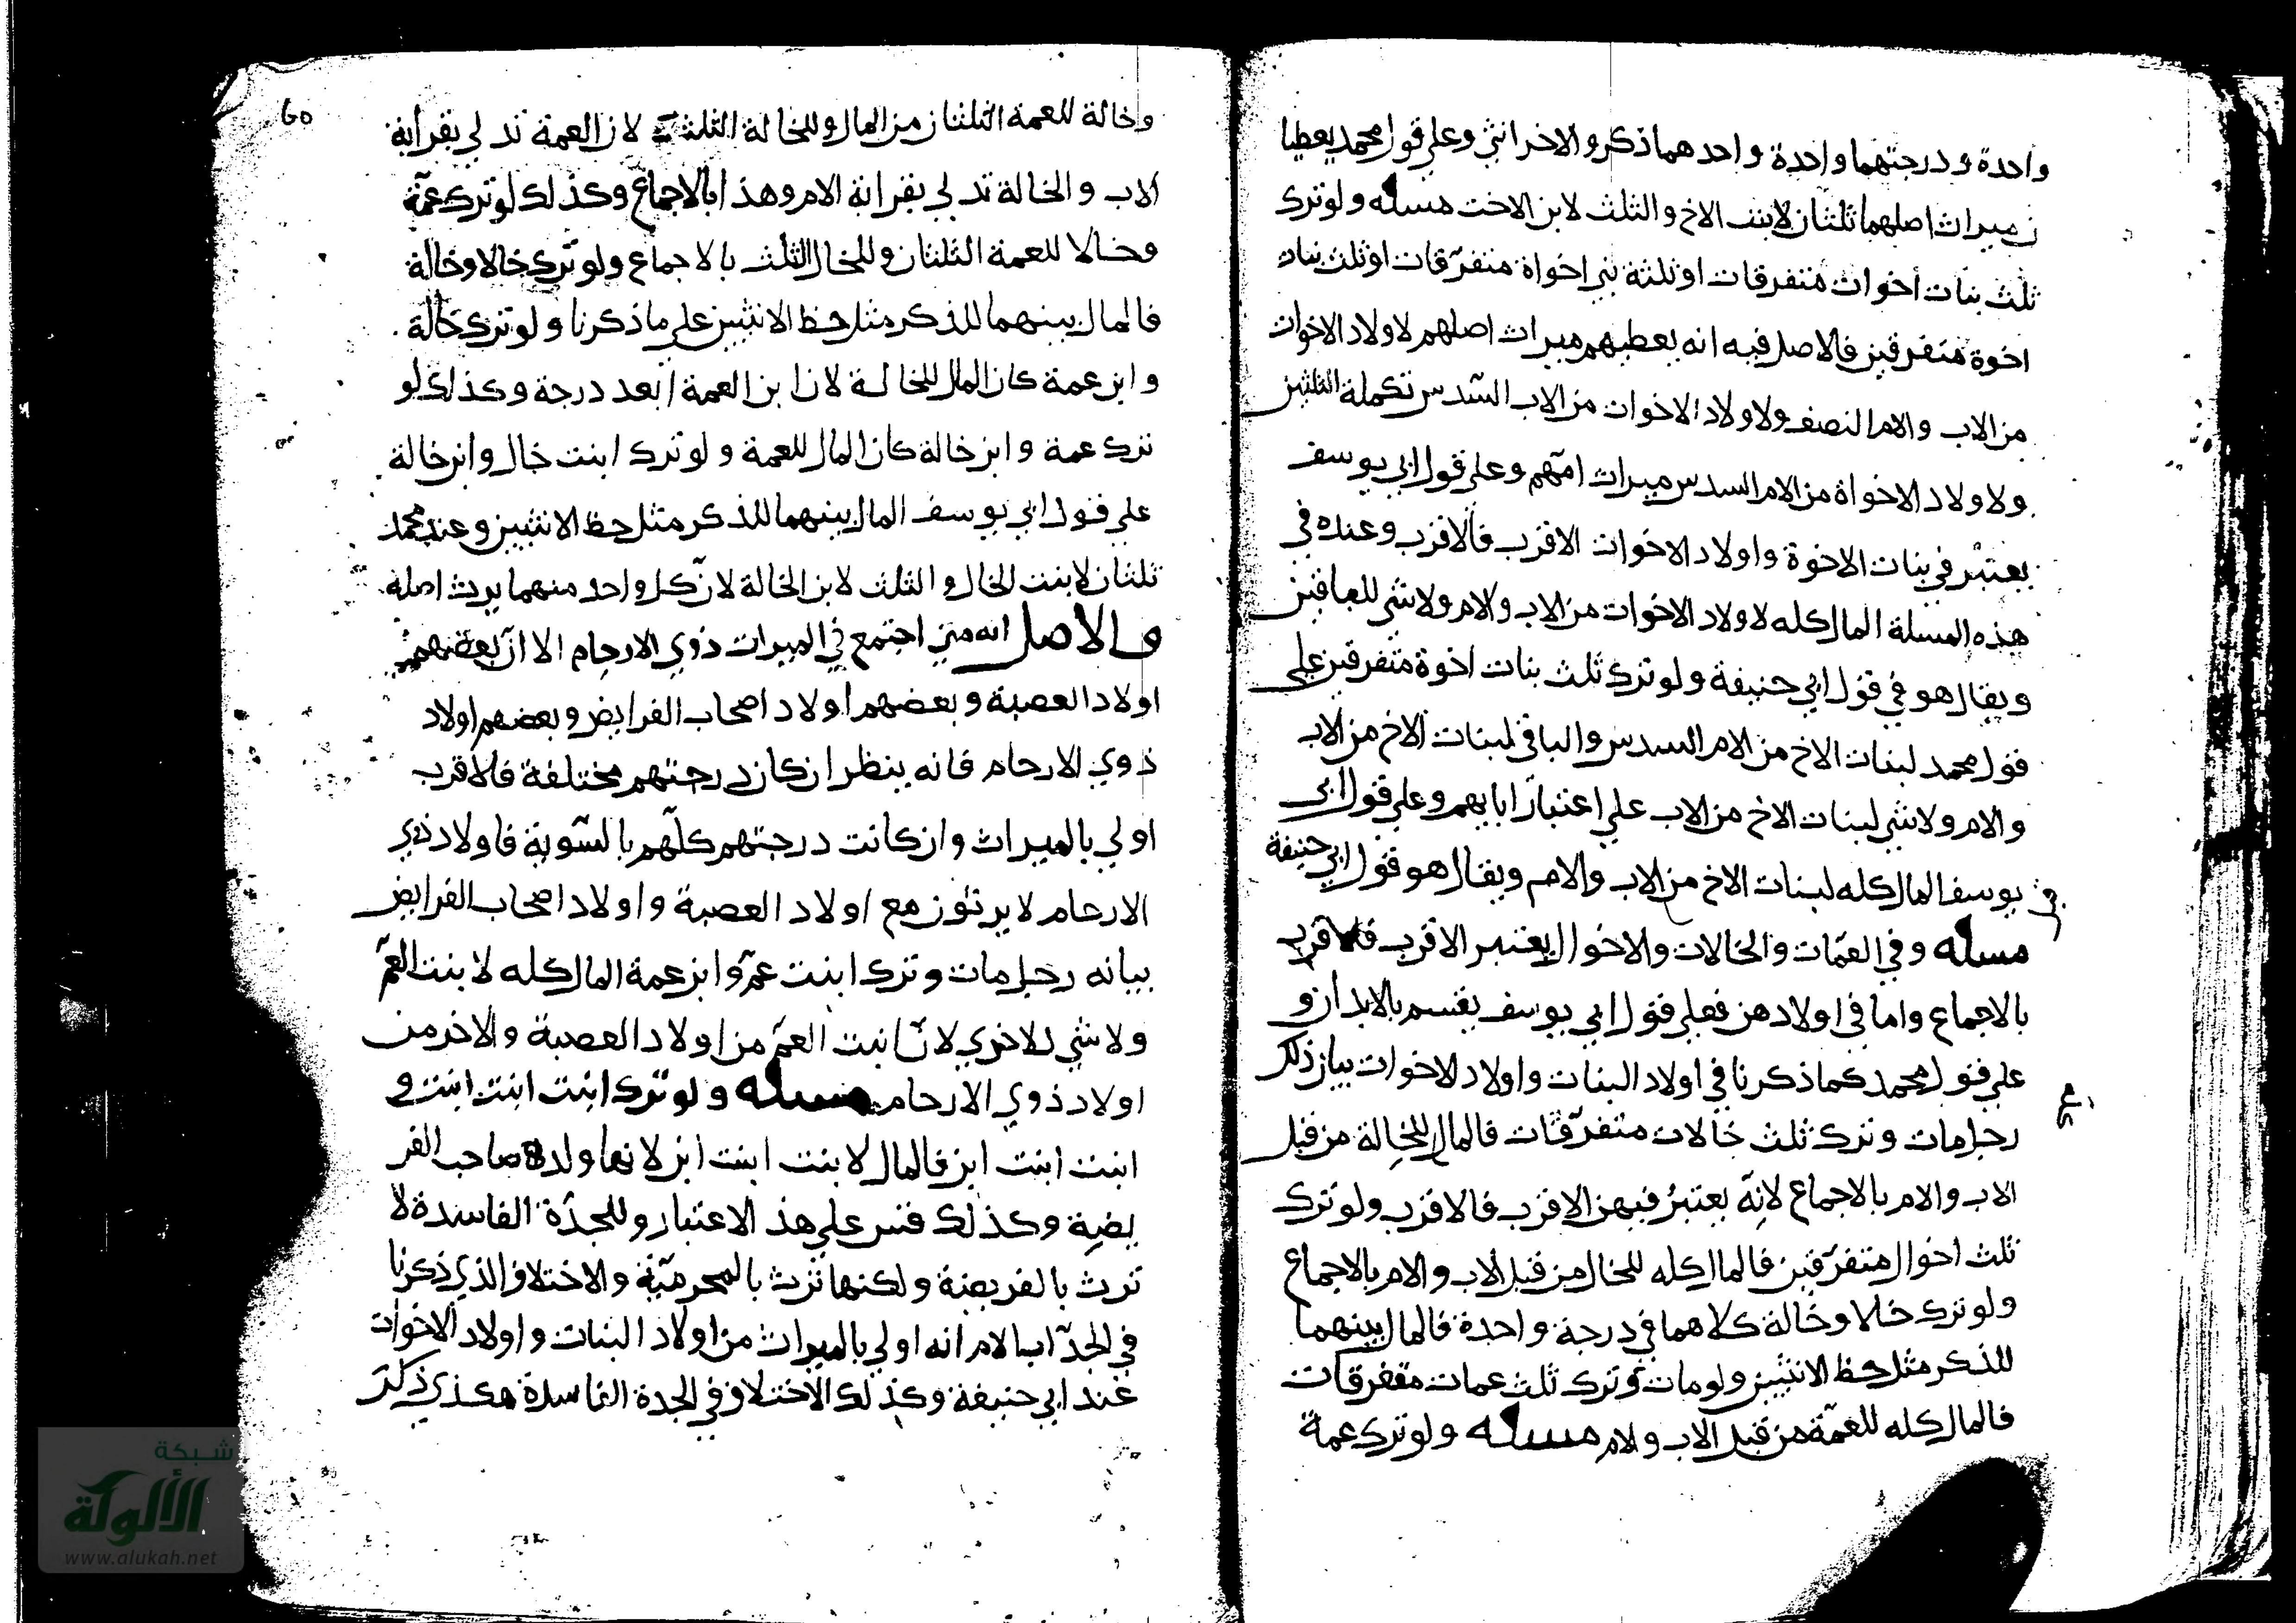 واحدة و درجتهما واحدة و احدهما ذكر والاخر انثى وعلي قول محمد يعطيا
ن ميراث اصلهما ثلثان لابنت الاخ و الثلث لابن الاخت مسئله و لو ترك
ثلث بنات أخوات متفرقات او ثلثة بني اخواة متفرقات او ثلث بنات
اخوة متفرقين فالاصل فيه انه يعطيهم ميراث اصلهم لاولاد الاخوات
من الاب والام النصف ولاولاد الاخوات من الاب السّدس تكملة الثلثين
ولاولاد الاخواة من الام السدس ميراث امّهم وعلي قول ابي يوسف
يعتبر في بنات الاخوة واولاد الاخوات الاقرب فالاقرب وعنده في
هذه المسلة المال كله لاولاد الاخوات من الاب والام ولاشي للباقين
ويقال هو في قول ابي حنيفة ولو ترك ثلث بنات اخوة متفرقين علي
قول محمد لبنات الاخ من الام السدس والباقي لبنات الاخ من الاب
والام ولاشي لبنات الاخ من الاب علي اعتبار ابايهم وعلي قول ابي
يوسف المال كله لبنات الاخ من الاب والام ويقال هو قول ابي حنيفة
مسله وفي العمّات والخالات والاخوال يعتبر الاقرب فالاقرب
بالاجماع واما في اولادهن فعلي قول ابي يوسف يقسم بالابدان و
علي قول محمد كما ذكرنا في اولاد البنات واولاد الاخوات بيان ذلك
رجل مات وترك ثلث خالات متفرّقات فالمال للخالة من قبل
الاب والام بالاجماع لانه يعتبر فيهن الاقرب فالاقرب ولو ترك
ثلث اخوال متفرّقين فالمال كله للخال من قبل الاب والام بالاجماع
ولو ترك خالا وخالة كلاهما في درجة واحدة فالمال بينهما
للذكر مثل حظ الانثيين ولو مات وترك ثلث عمات متفرقات
فالمال كله للعمّة من قبل الاب والام مسله ولو ترك عمة
60
وخالة للعمة الثلثان من المال وللخالة الثلث لان العمة تدلي بقرابة
الاب والخالة تدلي بقرابة الام وهذا بالاجماع وكذلك لو ترك عمّة
وخالا للعمة الثلثان وللخال الثلث بالاجماع ولو ترك خالا وخالة
فالمال بينهما للذكر مثل حظ الانثيين علي ما ذكرنا ولو ترك خالة
وابن عمة كان المال للخالة لان ابن العمة ابعد درجة وكذلك لو
ترك عمة وابن خالة كان المال للعمة ولو ترك ابنت خال وابن خالة
علي قول ابي يوسف المال بينهما للذكر مثل حظ الانثيين وعند محمد
ثلثان لابنت الخال والثلث لابن الخالة لان كل واحد منهما يرث اصله
والاصل انه متي اجتمع في الميراث ذوي الارحام الا ان بعضهم
اولاد العصبة وبعضهم اولاد اصحاب الفرايض وبعضهم اولاد
ذوي الارحام فانه ينظر ان كان درجتهم مختلفة فالاقرب
اولي بالميراث وان كانت درجتهم كلّهم بالسّوية فاولاد ذوي
الارحام لا يرثون مع اولاد العصبة واولاد اصحاب الفرايض
بيانه رجل مات وترك ابنت عمّ وابن عمة المال كله لابنت العمّ
ولاشي للاخري لانّ ابنت العمّ من اولاد العصبة والاخر من
اولاد ذوي الارحام مسله ولو ترك ابنت ابنت ابنت و
ابنت ابنت ابن فالمال لابنت ابنت ابن لانها ولد صاحب الفر
يضة وكذلك قس علي هذ الاعتبار وللجدّة الفاسدة لا
ترث بالفريضة ولكنها ترث بالمحرميّة والاختلاف الذي ذكرنا
في الجدّ اب الام انه اولي بالميراث من اولاد البنات واولاد الاخوات
عند ابي حنيفة وكذلك الاختلاف في الجدة الفاسدة هكذي ذكر
شبكة
الألوكة
www.alukah.net